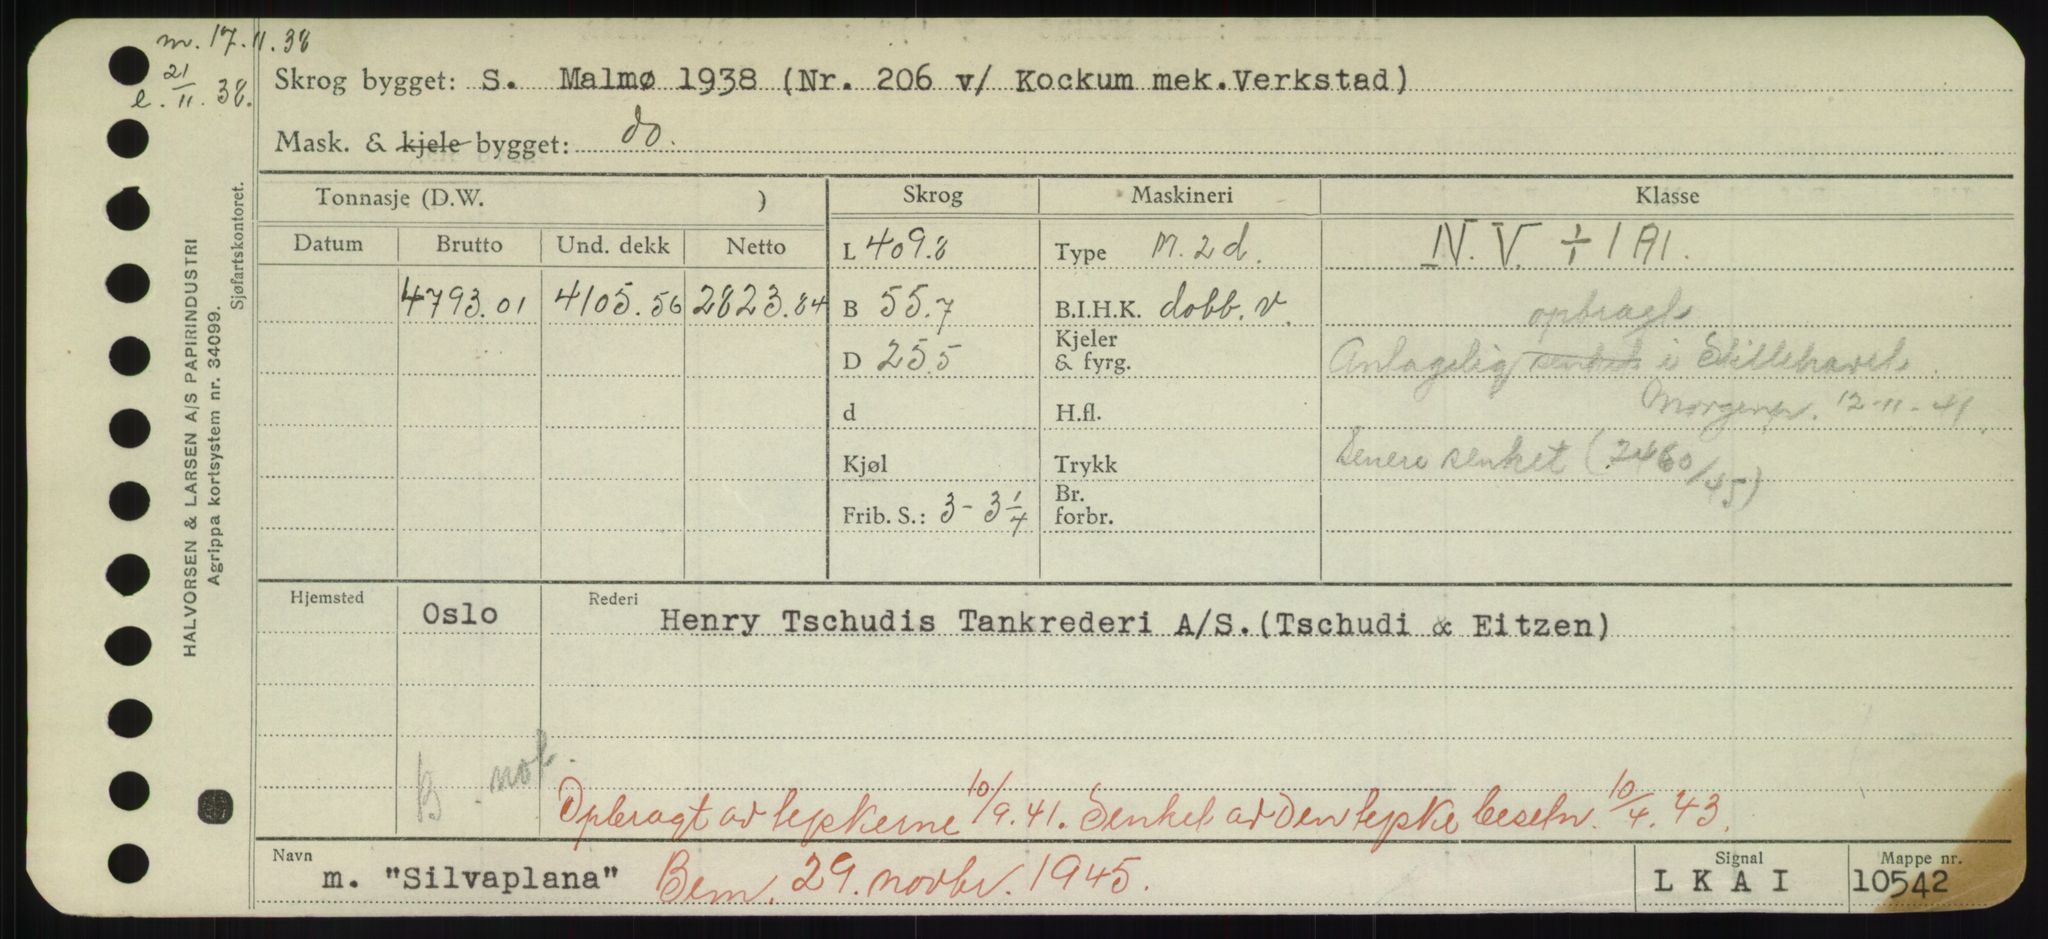 m. 17.11.38
e. 21/11.38.
Skrog bygget: S. Malmø 1938 (Nr. 206 v/ Kockum mek.Verkstad)
Mask. & kjele bygget: do.
Tonnasje (D.W. )
Skrog
Maskineri
Klasse
Datum
Brutto
Und. dekk
Netto
L 409.8
Type M. 2 d.
N.V. ÷ 1A1.
4793.01
4105.56
2823.84
B 55.7
B.I.H.K. dobb.v.
opbragt
D 25.5
Kjeler & fyrg.
Antagelig senket i Stillehavet
d
H.fl.
Morgenp. 12-11-41.
Kjøl
Trykk
Senere senket (2460/45)
Frib. S.: 3 - 3 1/4
Br. forbr.
Hjemsted
Oslo
Rederi
Henry Tschudis Tankrederi A/S.(Tschudi & Eitzen)
B. not.
Opbragt av tyskerne 10/9.41. Senket av den tyske besetn. 10/4.43.
Navn
m. "Silvaplana"
Bem. 29. novbr. 1945.
Signal
L K A I
Mappe nr.
10542
HALVORSEN & LARSEN A/S PAPIRINDUSTRI
Agrippa kortsystem nr. 34099.
Sjøfartskontoret.